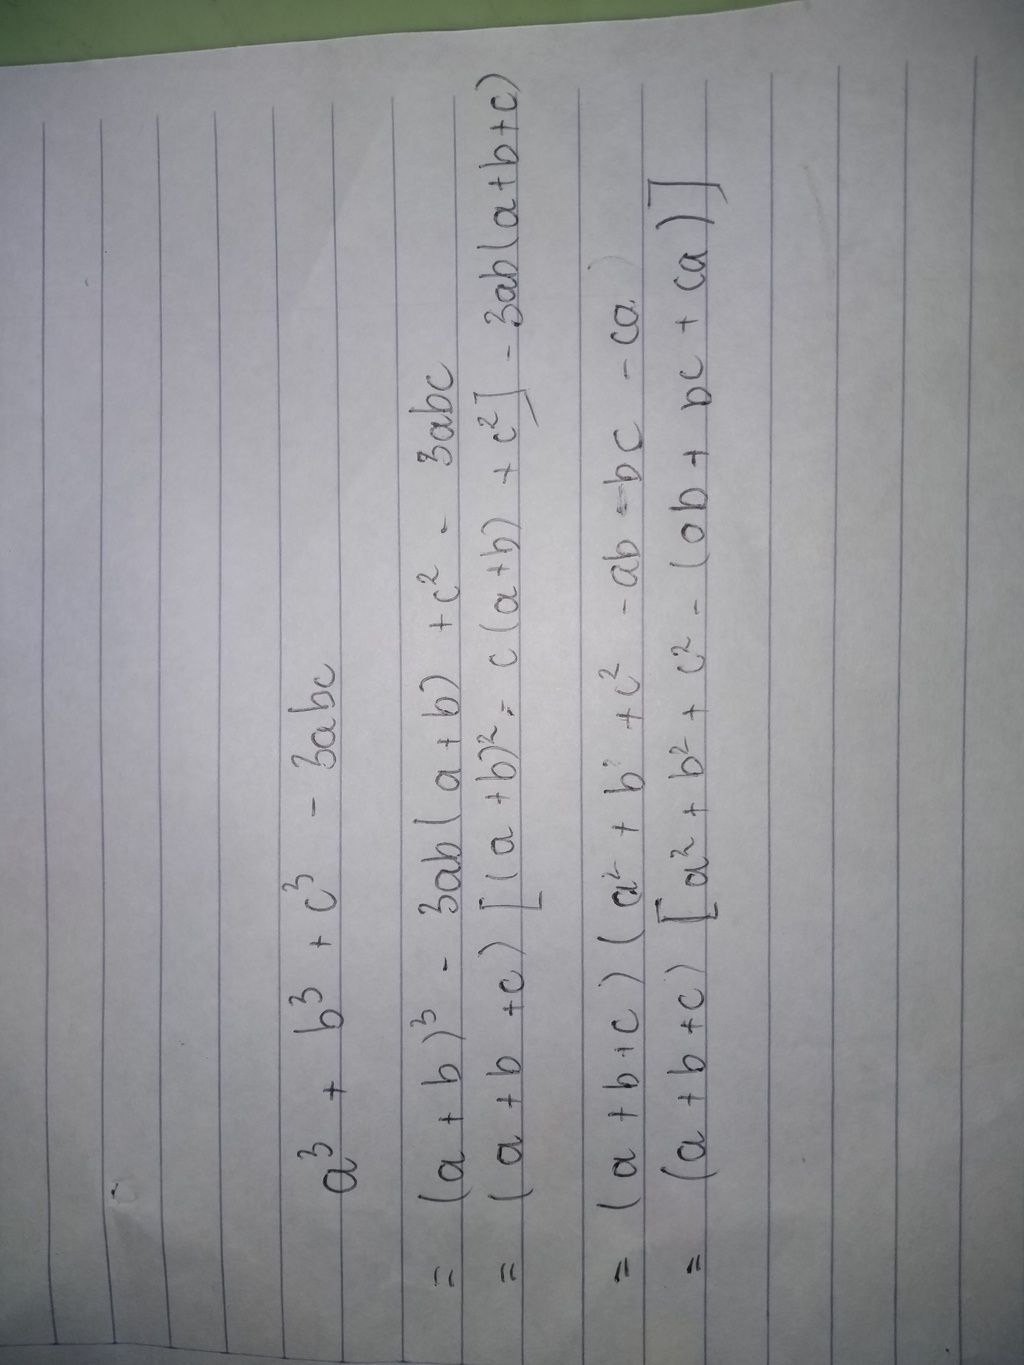 a³ + b³ + c³ - 3abc
= (a + b)³ - 3ab(a + b) + c² - 3abc
= (a + b + c) [(a + b)² = c (a+b) + c²] - 3ab(a+b+c)
= (a + b + c) (a² + b² + c² - ab - bc - ca)
= (a + b + c) [a² + b² + c² - (ab + bc + ca)]